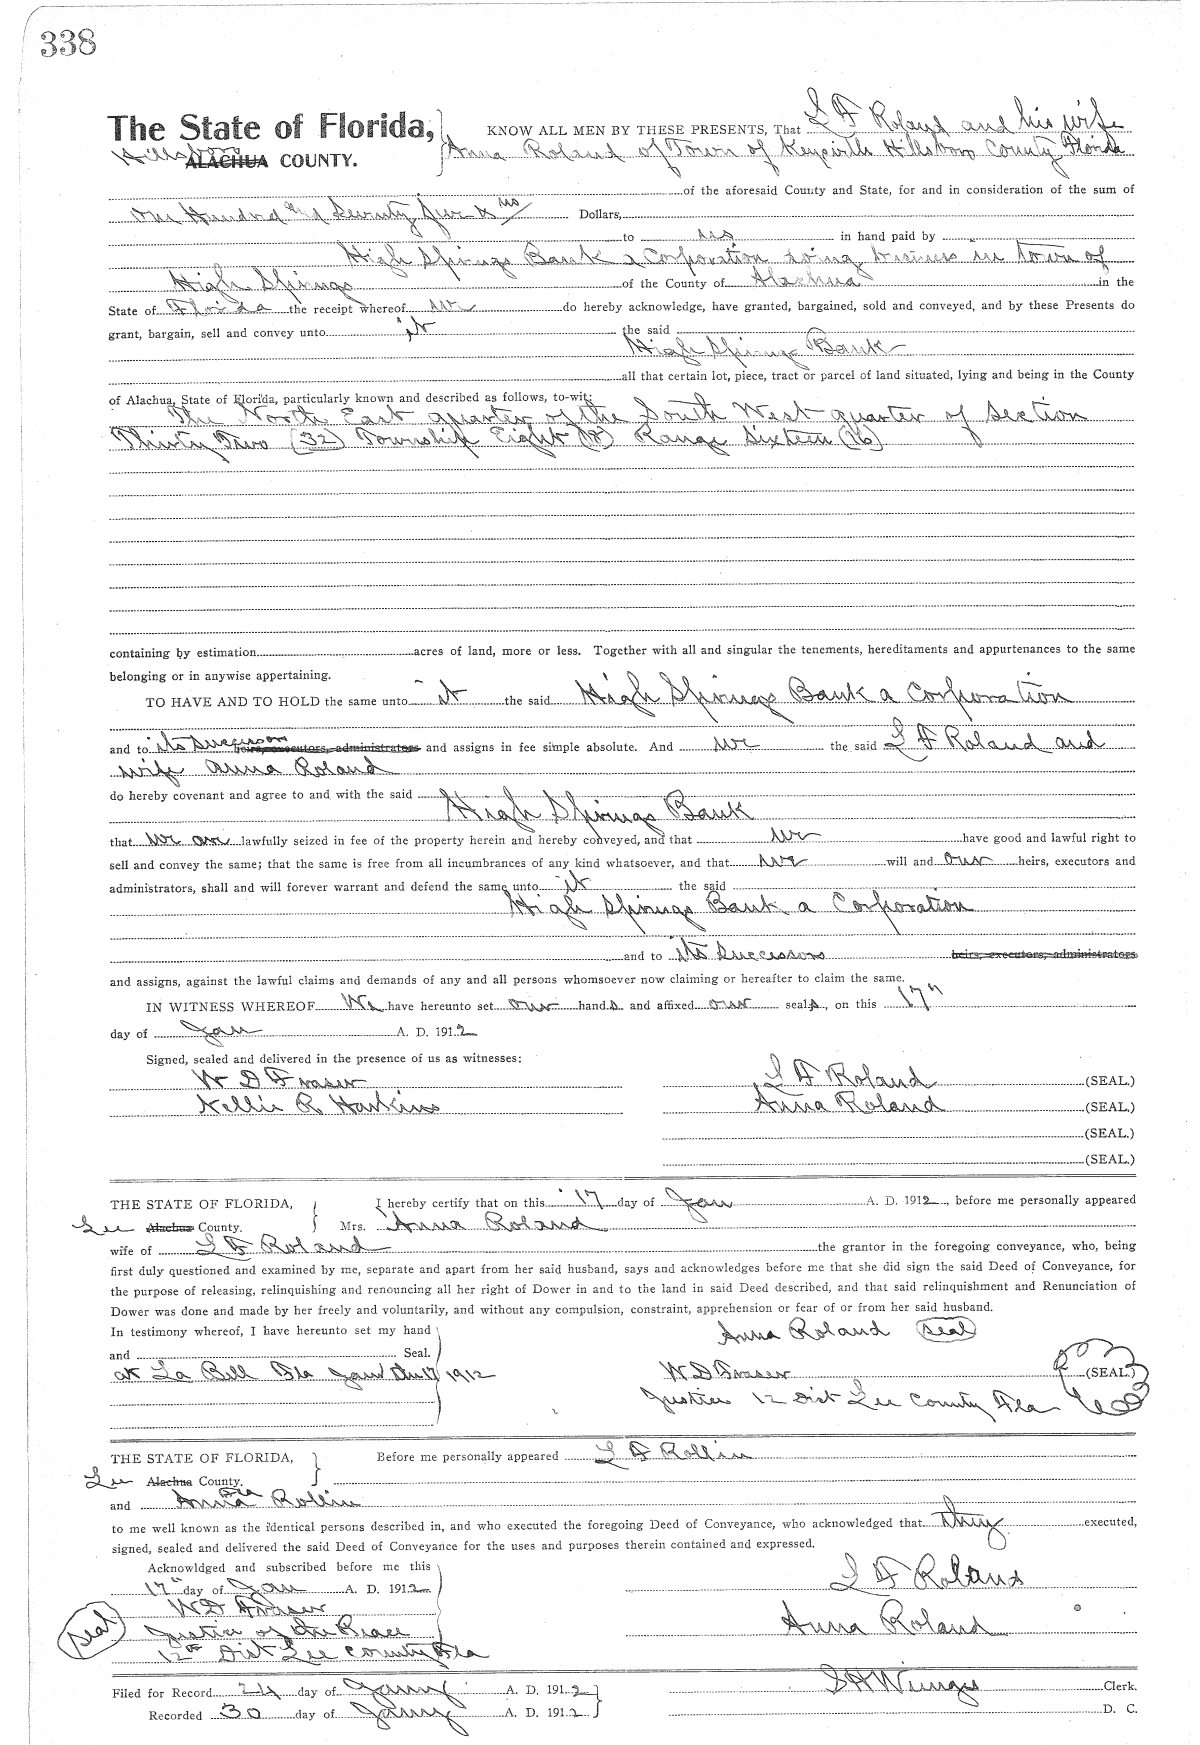 338
The State of Florida, KNOW ALL MEN BY THESE PRESENTS, That L F Roland and his wife
Hillsboro ALACHUA COUNTY. Anna Roland of Town of Keysville Hillsboro County Florida
of the aforesaid County and State, for and in consideration of the sum of
One Hundred and Seventy five & no/ Dollars,
to us in hand paid by
High Springs Bank a Corporation doing business in town of
High Springs of the County of Alachua in the
State of Florida the receipt whereof we do hereby acknowledge, have granted, bargained, sold and conveyed, and by these Presents do
grant, bargain, sell and convey unto it the said
High Springs Bank
all that certain lot, piece, tract or parcel of land situated, lying and being in the County
of Alachua, State of Florida, particularly known and described as follows, to-wit:
The North East quarter of the South West quarter of Section
Thirty Two (32) Township Eight (8) Range Sixteen (16)
containing by estimation acres of land, more or less. Together with all and singular the tenements, hereditaments and appurtenances to the same
belonging or in anywise appertaining.
TO HAVE AND TO HOLD the same unto it the said High Springs Bank a Corporation
and to its successors heirs, executors, administrators and assigns in fee simple absolute. And we the said L F Roland and
wife Anna Roland
do hereby covenant and agree to and with the said High Springs Bank
that we are lawfully seized in fee of the property herein and hereby conveyed, and that we have good and lawful right to
sell and convey the same; that the same is free from all incumbrances of any kind whatsoever, and that we will and our heirs, executors and
administrators, shall and will forever warrant and defend the same unto it the said
High Springs Bank a Corporation
and to its successors heirs, executors, administrators
and assigns, against the lawful claims and demands of any and all persons whomsoever now claiming or hereafter to claim the same.
IN WITNESS WHEREOF We have hereunto set our hands and affixed our seals, on this 17"
day of Jan A. D. 1912
Signed, sealed and delivered in the presence of us as witnesses:
W D Fraser L F Roland (SEAL.)
Nellie R Harkins Anna Roland (SEAL.)
(SEAL.)
(SEAL.)
THE STATE OF FLORIDA, I hereby certify that on this 17 day of Jan A. D. 1912, before me personally appeared
Lee Alachua County. Mrs. Anna Roland
wife of L F Roland the grantor in the foregoing conveyance, who, being
first duly questioned and examined by me, separate and apart from her said husband, says and acknowledges before me that she did sign the said Deed of Conveyance, for
the purpose of releasing, relinquishing and renouncing all her right of Dower in and to the land in said Deed described, and that said relinquishment and Renunciation of
Dower was done and made by her freely and voluntarily, and without any compulsion, constraint, apprehension or fear of or from her said husband.
In testimony whereof, I have hereunto set my hand Anna Roland Seal
and Seal.
at La Bell Fla Jany the 17 1912 W D Fraser (SEAL.)
Justice 12 Dist Lee County Fla
THE STATE OF FLORIDA, Before me personally appeared L F Rollin
Lee Alachua County.
and Anna Rollin
to me well known as the identical persons described in, and who executed the foregoing Deed of Conveyance, who acknowledged that they executed,
signed, sealed and delivered the said Deed of Conveyance for the uses and purposes therein contained and expressed.
Acknowldged and subscribed before me this L F Roland
17" day of Jan A. D. 1912
W D Fraser Anna Roland
Seal Justice of the Peace
12th Dist Lee County Fla
Filed for Record 24 day of Jany A. D. 1912 S H Wienges Clerk.
Recorded 30 day of Jany A. D. 1912 D. C.